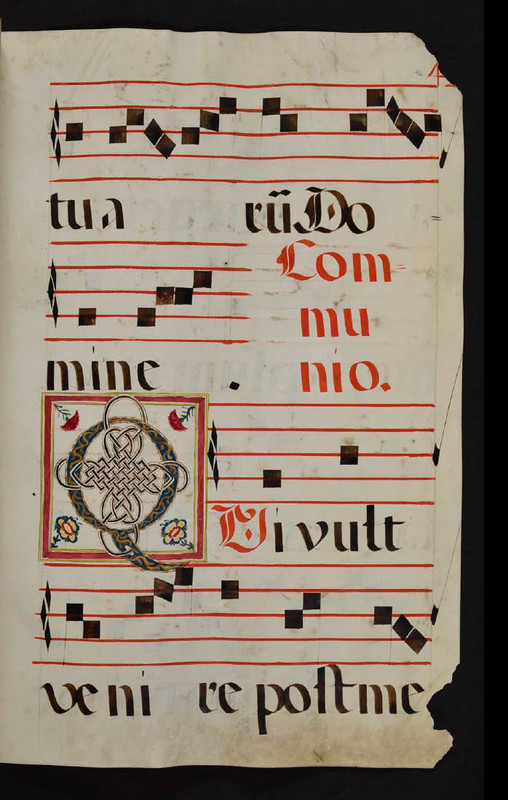 tua rũ Do
Com=
mu
nio.
mine .
QVi vult
veni re post me